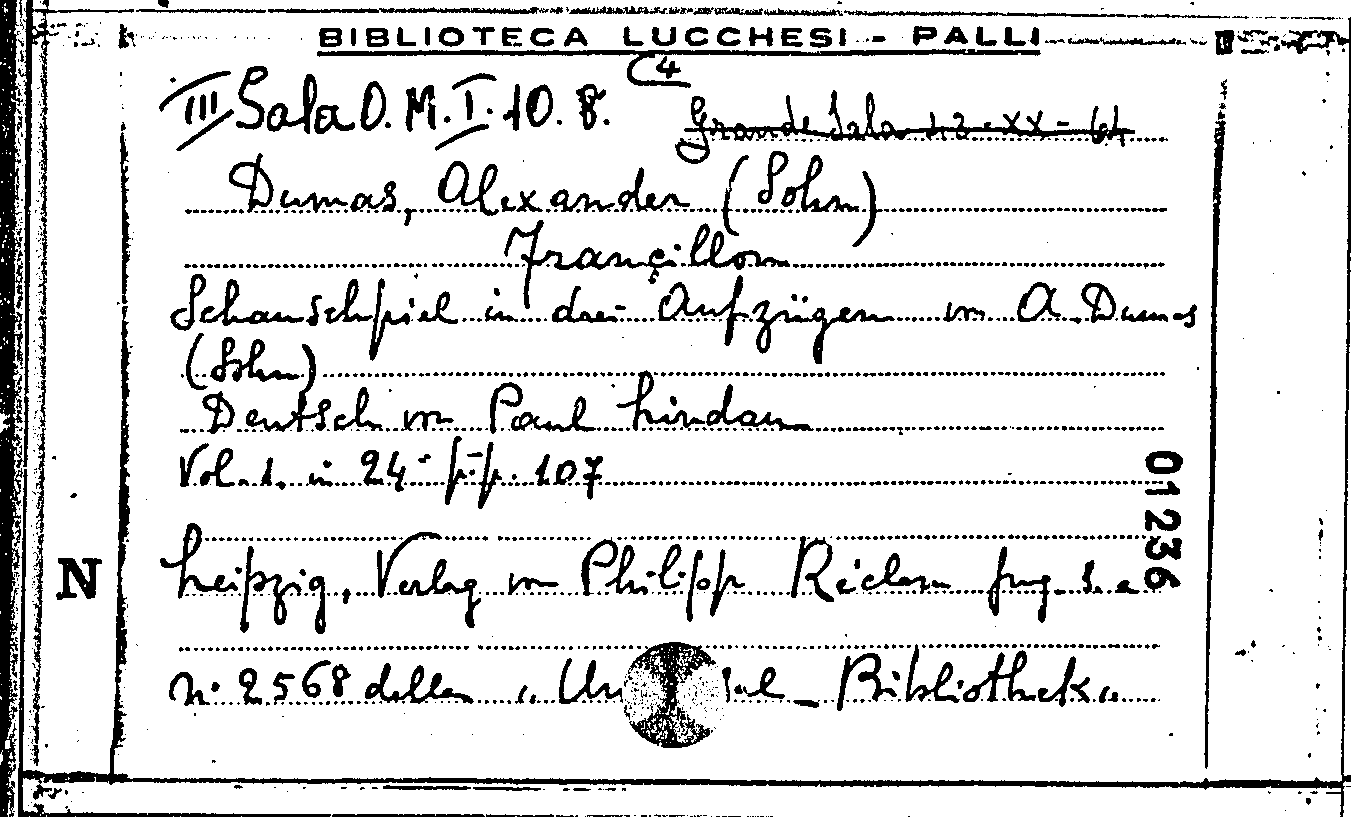 BIBLIOTECA LUCCHESI - PALLI
III Sala O. M. I. 10. 8. (4
Grande Sala 43-XX-64
Dumas, Alexander (Sohn)
Françillon
Schauschpiel in drei Aufzügen von A. Dumas
(Sohn)
Deutsch von Paul Lindau
Vol. 1. in 24° p.p. 107
01236
N
Leipzig, Verlag von Philipp Réclam jug. s. a
n. 2568 della "Un al - Bibliothek"